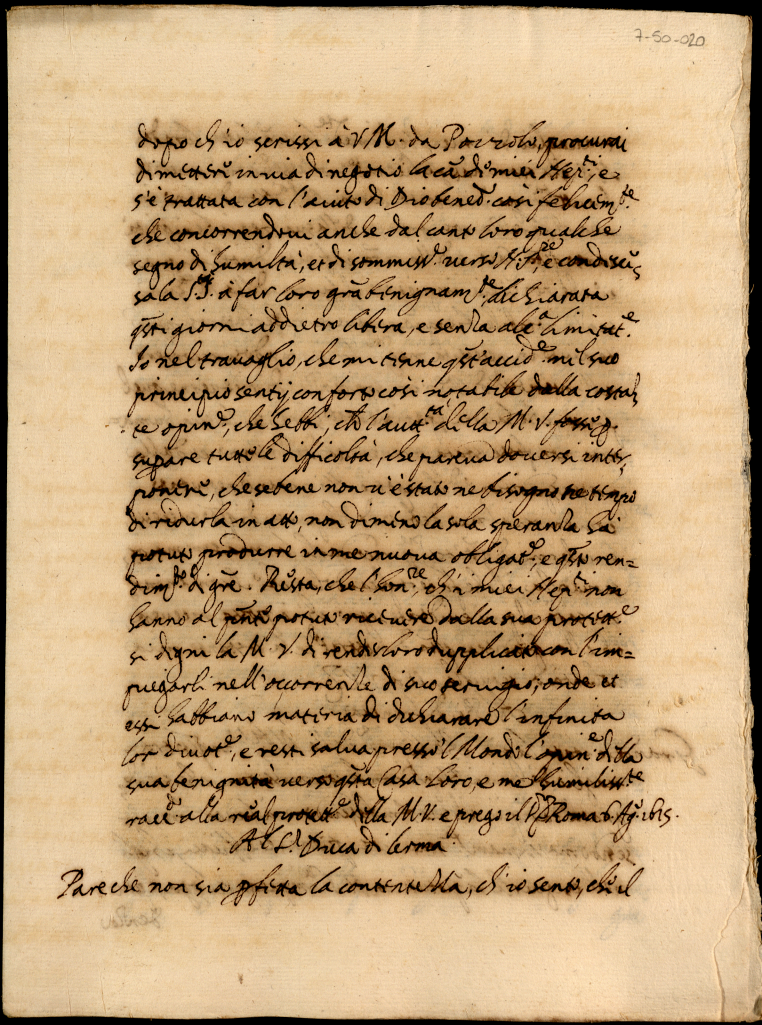 7-50-020
dopo ch'io scrissi à V.M. da Pozzolo, procurai
di mettere in via di negotio la cã di miei Nep.ti, e
s'è trattata con l'aiuto di Dio bened.o così felicem.te
che concorrendovi anche dal canto loro qualche
segno di humiltà, et di sommiss.e verso N. S.re, è condisce-
sa la S.tà S. à far loro grã benignam.te dichiarata
q̃sti giorni addietro libera, e senza alc.a limitat.e
Io nel travaglio, che mi tenne q̃st'accid.e nel suo
principio sentij conforto così notabile dalla costan-
te opin.e, che hebbi, che l'autt.tà della M. V. fosse p.
supare tutte le difficoltà, che pareva doversi inter-
ponere, che se bene non v'è stato ne bisogno ne tempo
di ridurla in atto, non dimeno la sola speranza hà
potuto produrre in me nuova obligat.e, e q̃sto ren-
dim.to di gře. Resta, che l'hon.re, ch'i miei Nep.ti non
hanno al p̃nte potuto ricevere dalla sua protett.e
si degni la M. V. di renderloro duplicato con l'im-
piegarli nell'occorrenze di suo servigio, onde et
essi habbiano materia di dichiarare l'infinita
lor divot.e, e resti salva presso 'l Mondo l'opin.e della
sua benignità verso q̃sta Casa loro, e me humiliss.te
racc.do alla real protett.e della M.V. e prego il S.re Roma 6. Ag.o 1615.
Al S.r Duca di lerma
Pare che non sia pfetta la contentezza, ch'io sento, che il